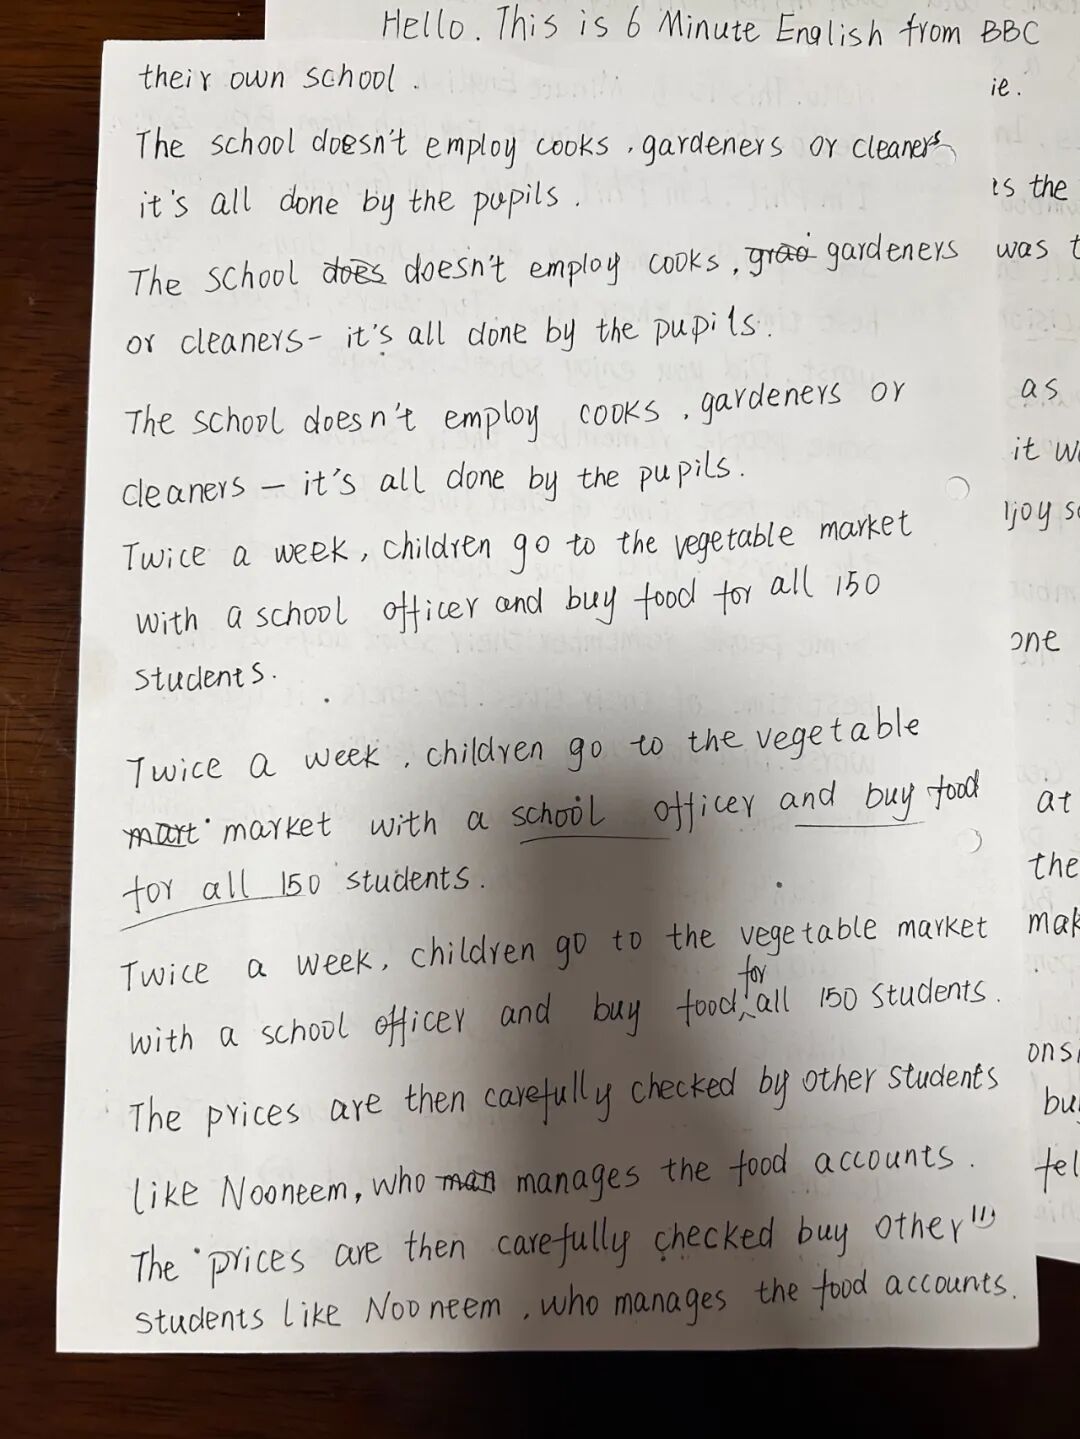 Hello. This is 6 Minute English from BBC
their own school.
ie.
The school doesn't employ cooks, gardeners or cleaners
it's all done by the pupils.
is the
The school does doesn't employ cooks, grad gardeners
was t
or cleaners- it's all done by the pupils.
The school doesn't employ cooks, gardeners or
as
cleaners - it's all done by the pupils.
it w
Twice a week, children go to the vegetable market
njoy s
with a school officer and buy food for all 150
students.
one
Twice a week, children go to the vegetable
mart market with a school officer and buy food
at
for all 150 students.
the
Twice a week, children go to the vegetable market
mak
with a school officer and buy food for all 150 students.
onsi
The prices are then carefully checked by other students
bu
like Nooneem, who man manages the food accounts.
fel
The prices are then carefully checked buy other
students like Nooneem, who manages the food accounts.